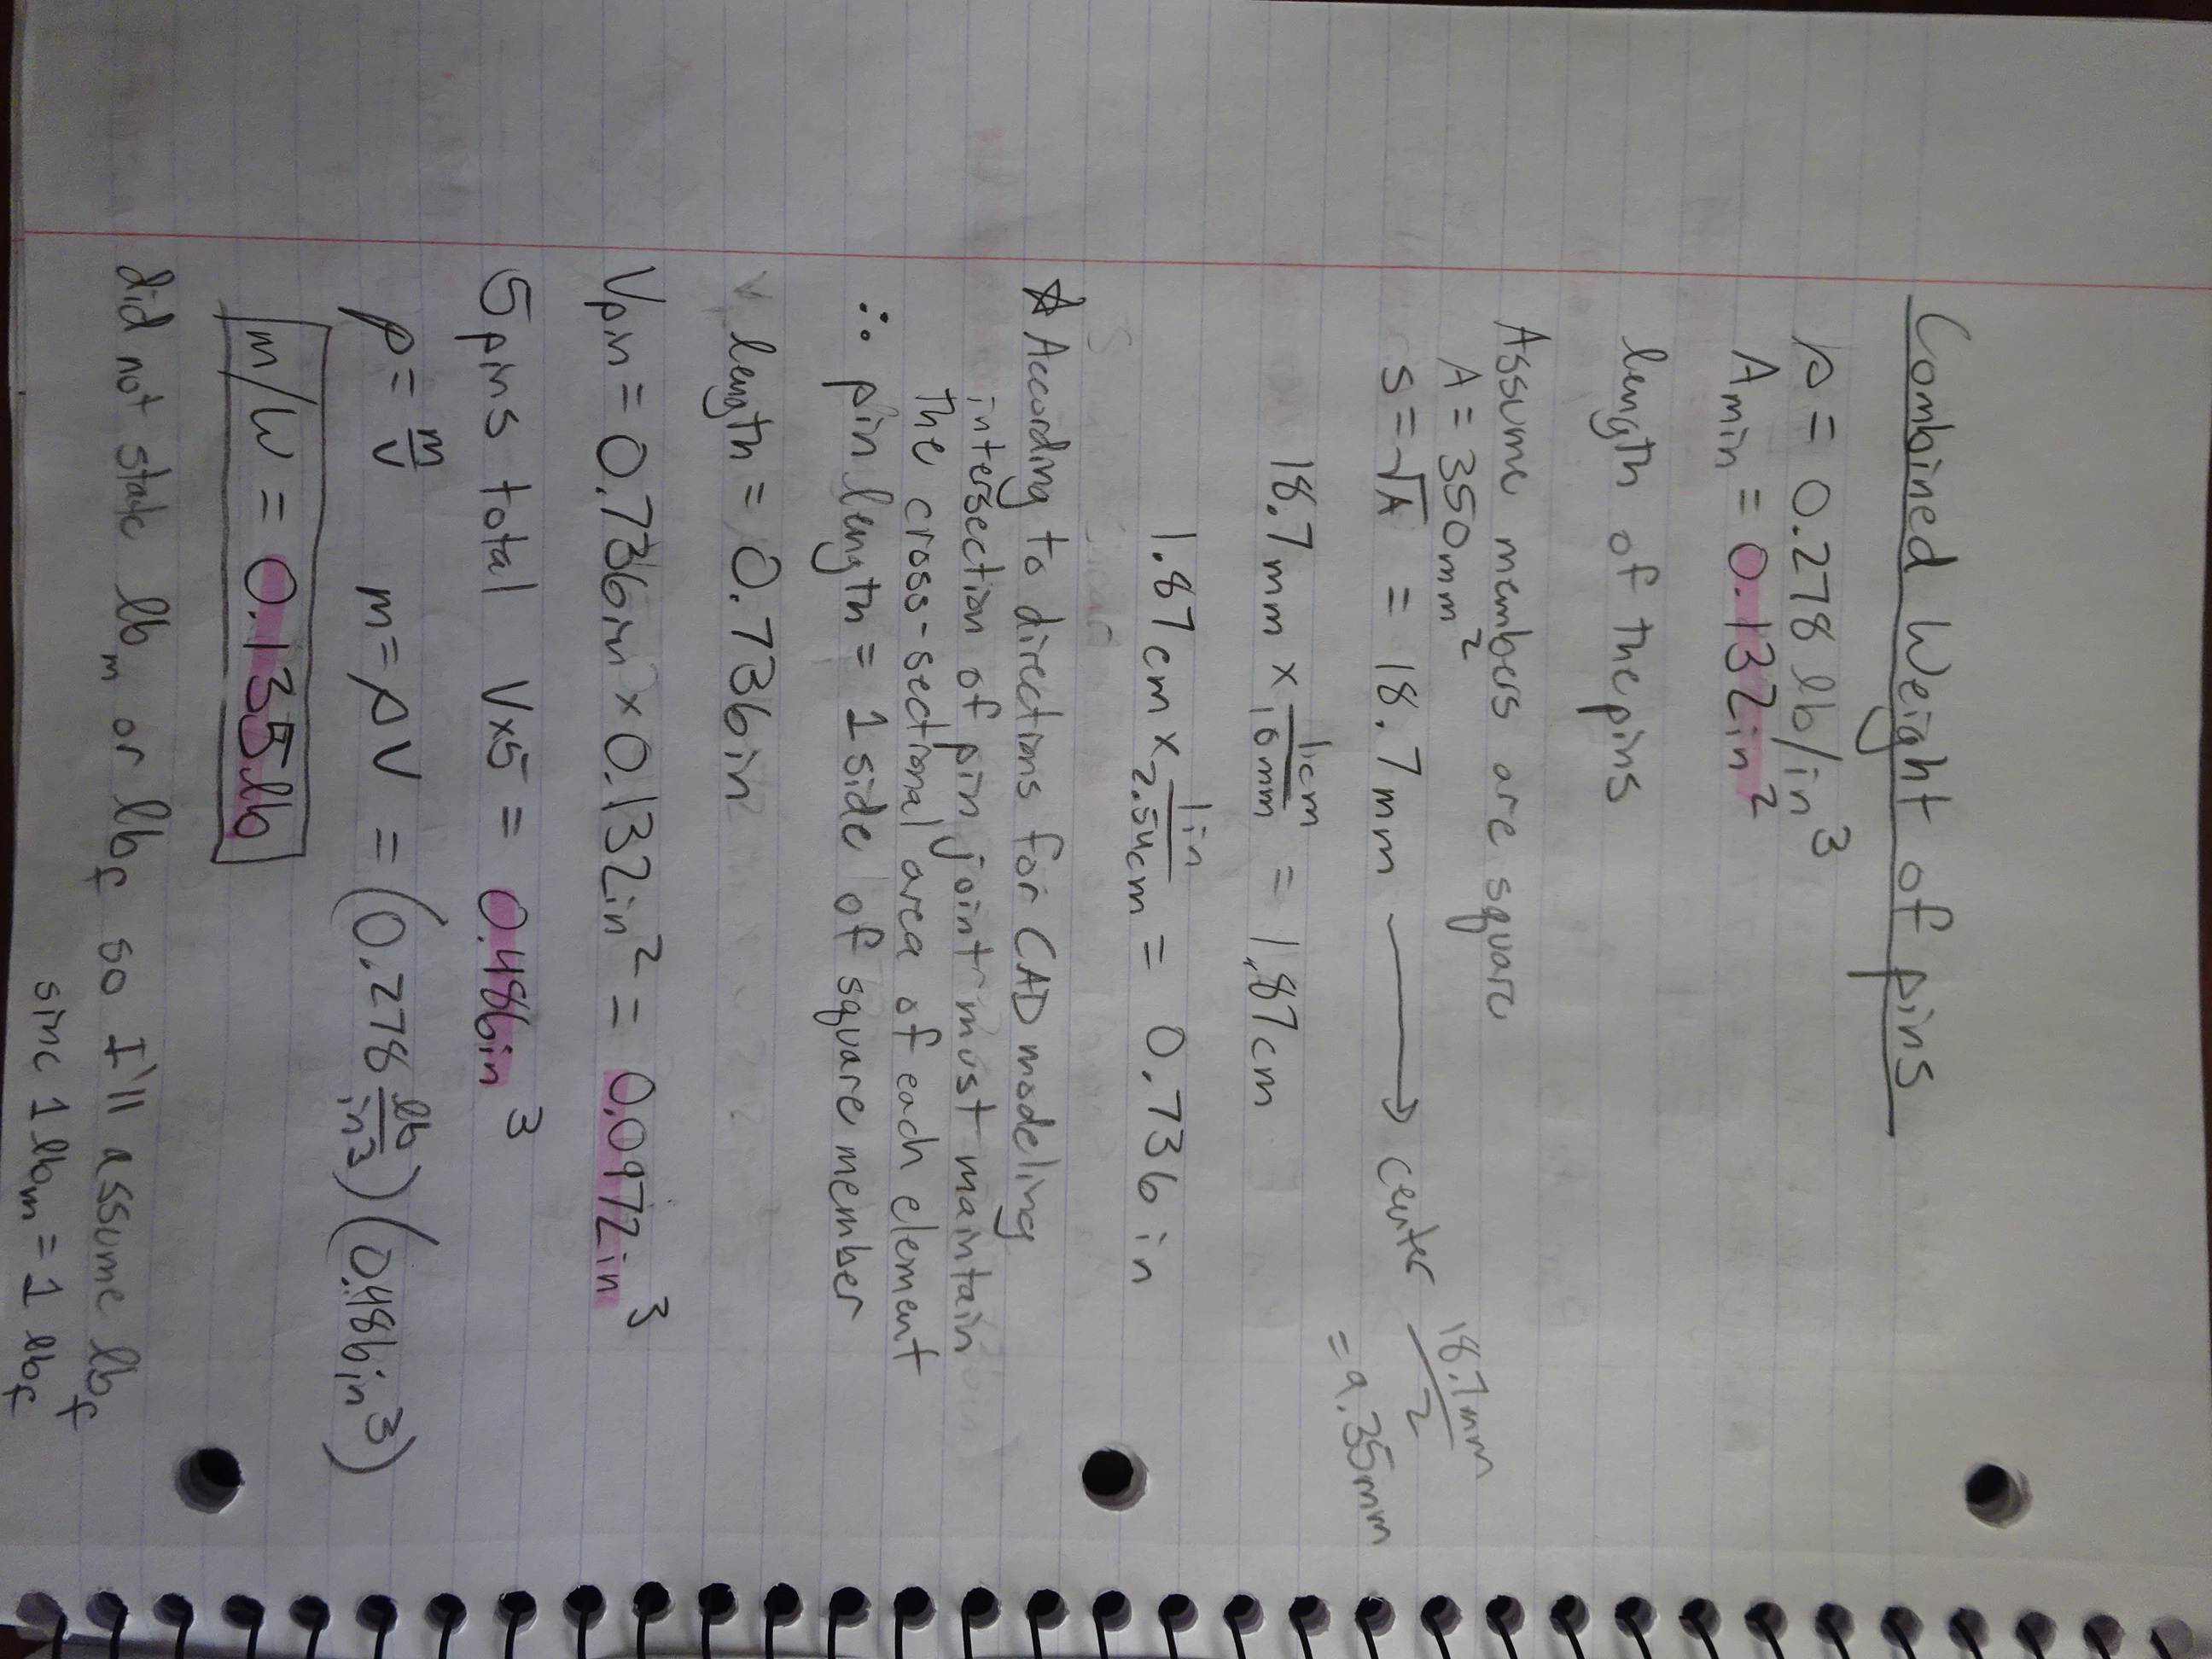 Combined Weight of pins
ρ = 0.278 lb/in³
Amin = 0.132in²
length of the pins
Assume members are square
A = 350mm²
s = √A = 18.7mm → center 18.7mm/2 = 9.35mm
18.7mm x 1cm/10mm = 1.87cm
1.87cm x 1in/2.54cm = 0.736in
☆ According to directions for CAD modeling
intersection of pin joint must maintain
the cross-sectional area of each element
∴ pin length = 1 side of square member
length = 0.736in
Vpin = 0.736in x 0.132in² = 0.0972in³
5 pins total V×5 = 0.486in³
ρ = m/V m = ρV = (0.278 lb/in³)(0.486in³)
m/W = 0.135lb
did not state lbm or lbf so I'll assume lbf
since 1 lbm = 1 lbf